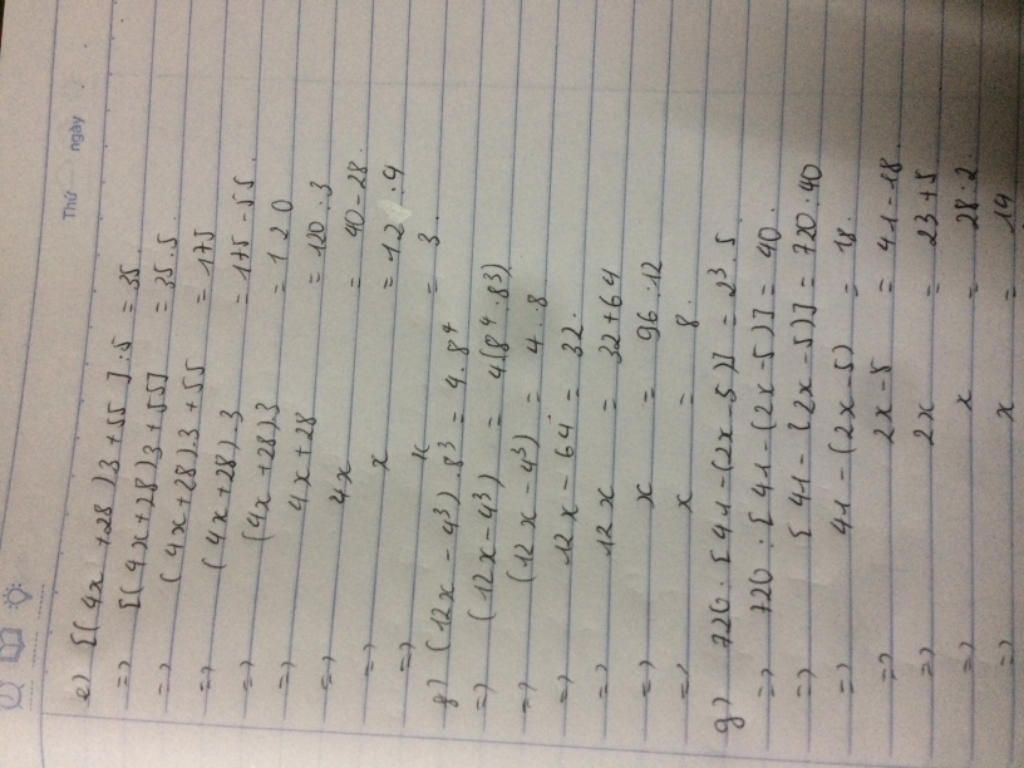 Thứ ngày
e) [(4x +28).3 +55] : 5 = 35
=> [(4x+28).3+55] = 35.5
=> (4x+28).3+55 = 175
=> (4x+28).3 = 175-55
=> (4x+28).3 = 120
=> 4x+28 = 120:3
=> 4x = 40-28
=> x = 12:4
=> x = 3
f) (12x-4³).8³ = 4.8⁴
=> (12x-4³) = 4(8⁴:8³)
=> (12x-4³) = 4.8
=> 12x-64 = 32
=> 12x = 32+64
=> x = 96:12
=> x = 8
g) 720:[41-(2x-5)] = 2³.5
=> 720:[41-(2x-5)] = 40
=> [41-(2x-5)] = 720:40
=> 41-(2x-5) = 18
=> 2x-5 = 41-18
=> 2x = 23+5
=> x = 28:2
=> x = 14